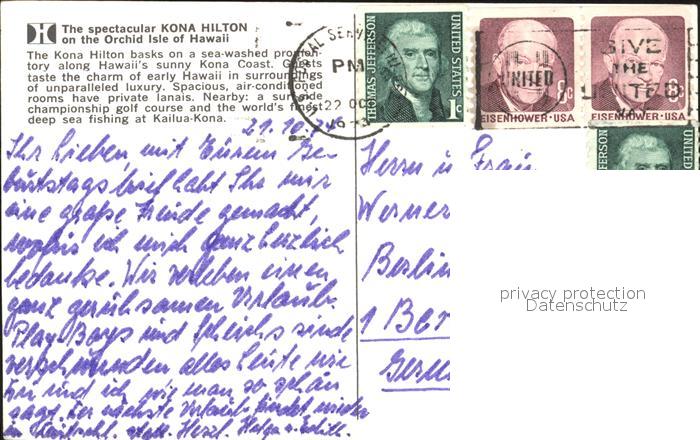 The spectacular KONA HILTON
on the Orchid Isle of Hawaii
The Kona Hilton basks on a sea-washed promon-
tory along Hawaii's sunny Kona Coast. Guests
taste the charm of early Hawaii in surroundings
of unparalleled luxury. Spacious, air-conditioned
rooms have private lanais. Nearby: a
championship golf course and the world's finest
deep sea fishing at Kailua-Kona.
PM
22 OC
THOMAS JEFFERSON
UNITED STATES
1c
EISENHOWER·USA
8c
EISENHOWER·USA
GIVE
THE
UNITED
WAY
UNITED
FERSON
UNITED
Ihr Lieben, mit Eurem Ge-
burtstagsbrief habt Ihr mir
eine große Freude gemacht,
wofür ich mich ganz herzlich
bedanke. Wir verleben einen
ganz geruhsamen Urlaub.
Play-Boys und Scheichs sind
verschwunden alles Leute wie
Du und ich wie man so schön
sagt. Der nächste Urlaub findet wieder
in statt. Herzl. Helga u.
Herrn u Frau
Werner
Berlin
1 Ber
Germ
privacy protection
Datenschutz